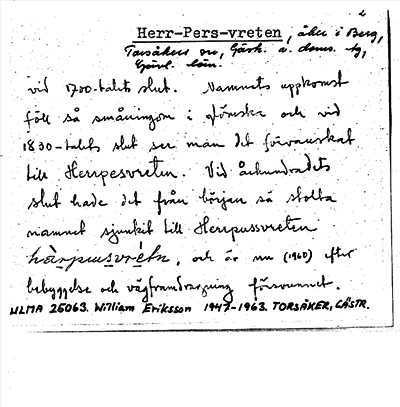 2
Herr-Pers-vreten, åker i Berg,
Torsåkers sn, Gästr. ö. doms. tg,
Gävl. län.
vid 1700-talets slut. Namnets uppkomst
föll så småningom i glömska och vid
1830-talets slut ser man det förvanskat
till Herrpesvreten. Vid århundradets
slut hade det från början så stolta
namnet sjunkit till Herrpussvreten
och är nu (1960) efter
bebyggelse och vägframdragning försvunnet.
ULMA 25063. William Eriksson 1947-1963. TORSÅKER, GÄSTR.